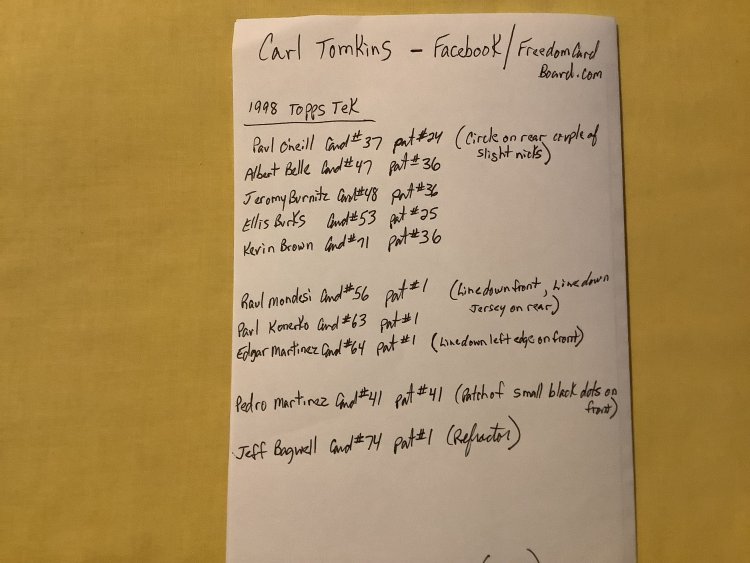 Carl Tomkins - Facebook/FreedomCard
Board.com
1998 Topps Tek
Paul O'neill Card#37 pat#24 (Circle on rear couple of
slight nicks)
Albert Belle Card#47 pat#36
Jeromy Burnitz Card#48 pat#36
Ellis Burks Card#53 pat#25
Kevin Brown Card#71 pat#36
Raul mondesi Card#56 pat#1 (Line down front, Line down
Jersey on rear)
Paul Konerko Card#63 pat#1
Edgar Martinez Card#64 pat#1 (Line down left edge on front)
Pedro Martinez Card#41 pat#41 (Patch of small black dots on
front)
Jeff Bagwell Card#74 pat#1 (Refractor)